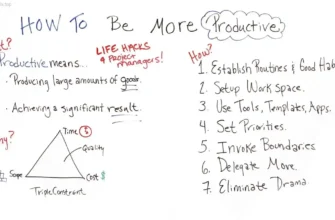 HOW TO Be More Productive
?
LIFE HACKS
4 Project
managers!
Productive means...
· Producing large amounts of goods.
· Achieving a significant result.
?
Time
Quality
Scope
Cost $
Triple Constraint
How?
1. Establish Routines & Good Hab
2. Setup Work Space.
3. Use Tools, Templates, Apps.
4. Set Priorities.
5. Invoke Boundaries
6. Delegate More.
7. Eliminate Drama.